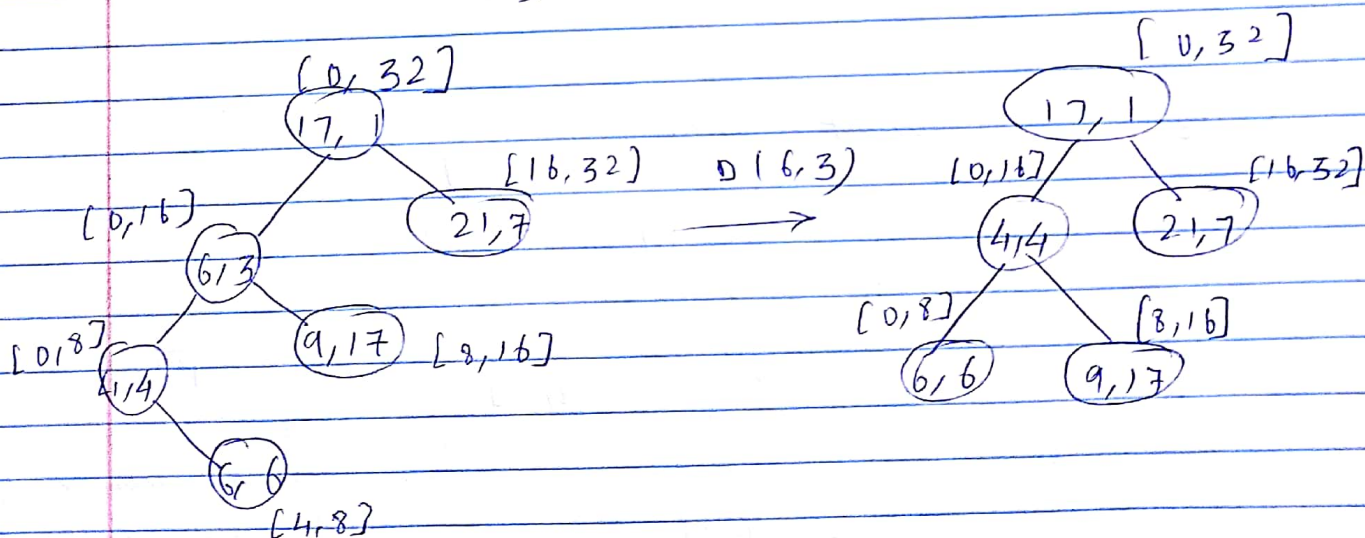 [0, 32]
17, 1
[16, 32]
21, 7
[0, 16]
6, 3
[0, 8]
4, 4
9, 17
[8, 16]
6, 6
[4, 8]
D(6, 3)
[0, 32]
17, 1
[0, 16]
[16, 32]
4, 4
21, 7
[0, 8]
[8, 16]
6, 6
9, 17